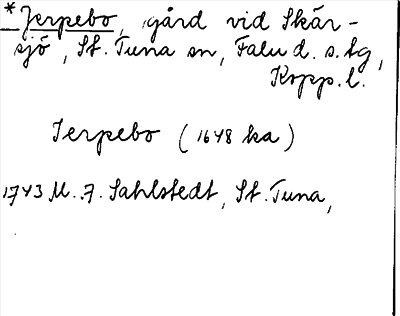 *Jerpebo, gård vid Skär-
sjö, St. Tuna sn, Falu d. s. tg,
Kopp. l.
Jerpebo (1648 ka)
1743 M. F. Sahlstedt, St. Tuna,